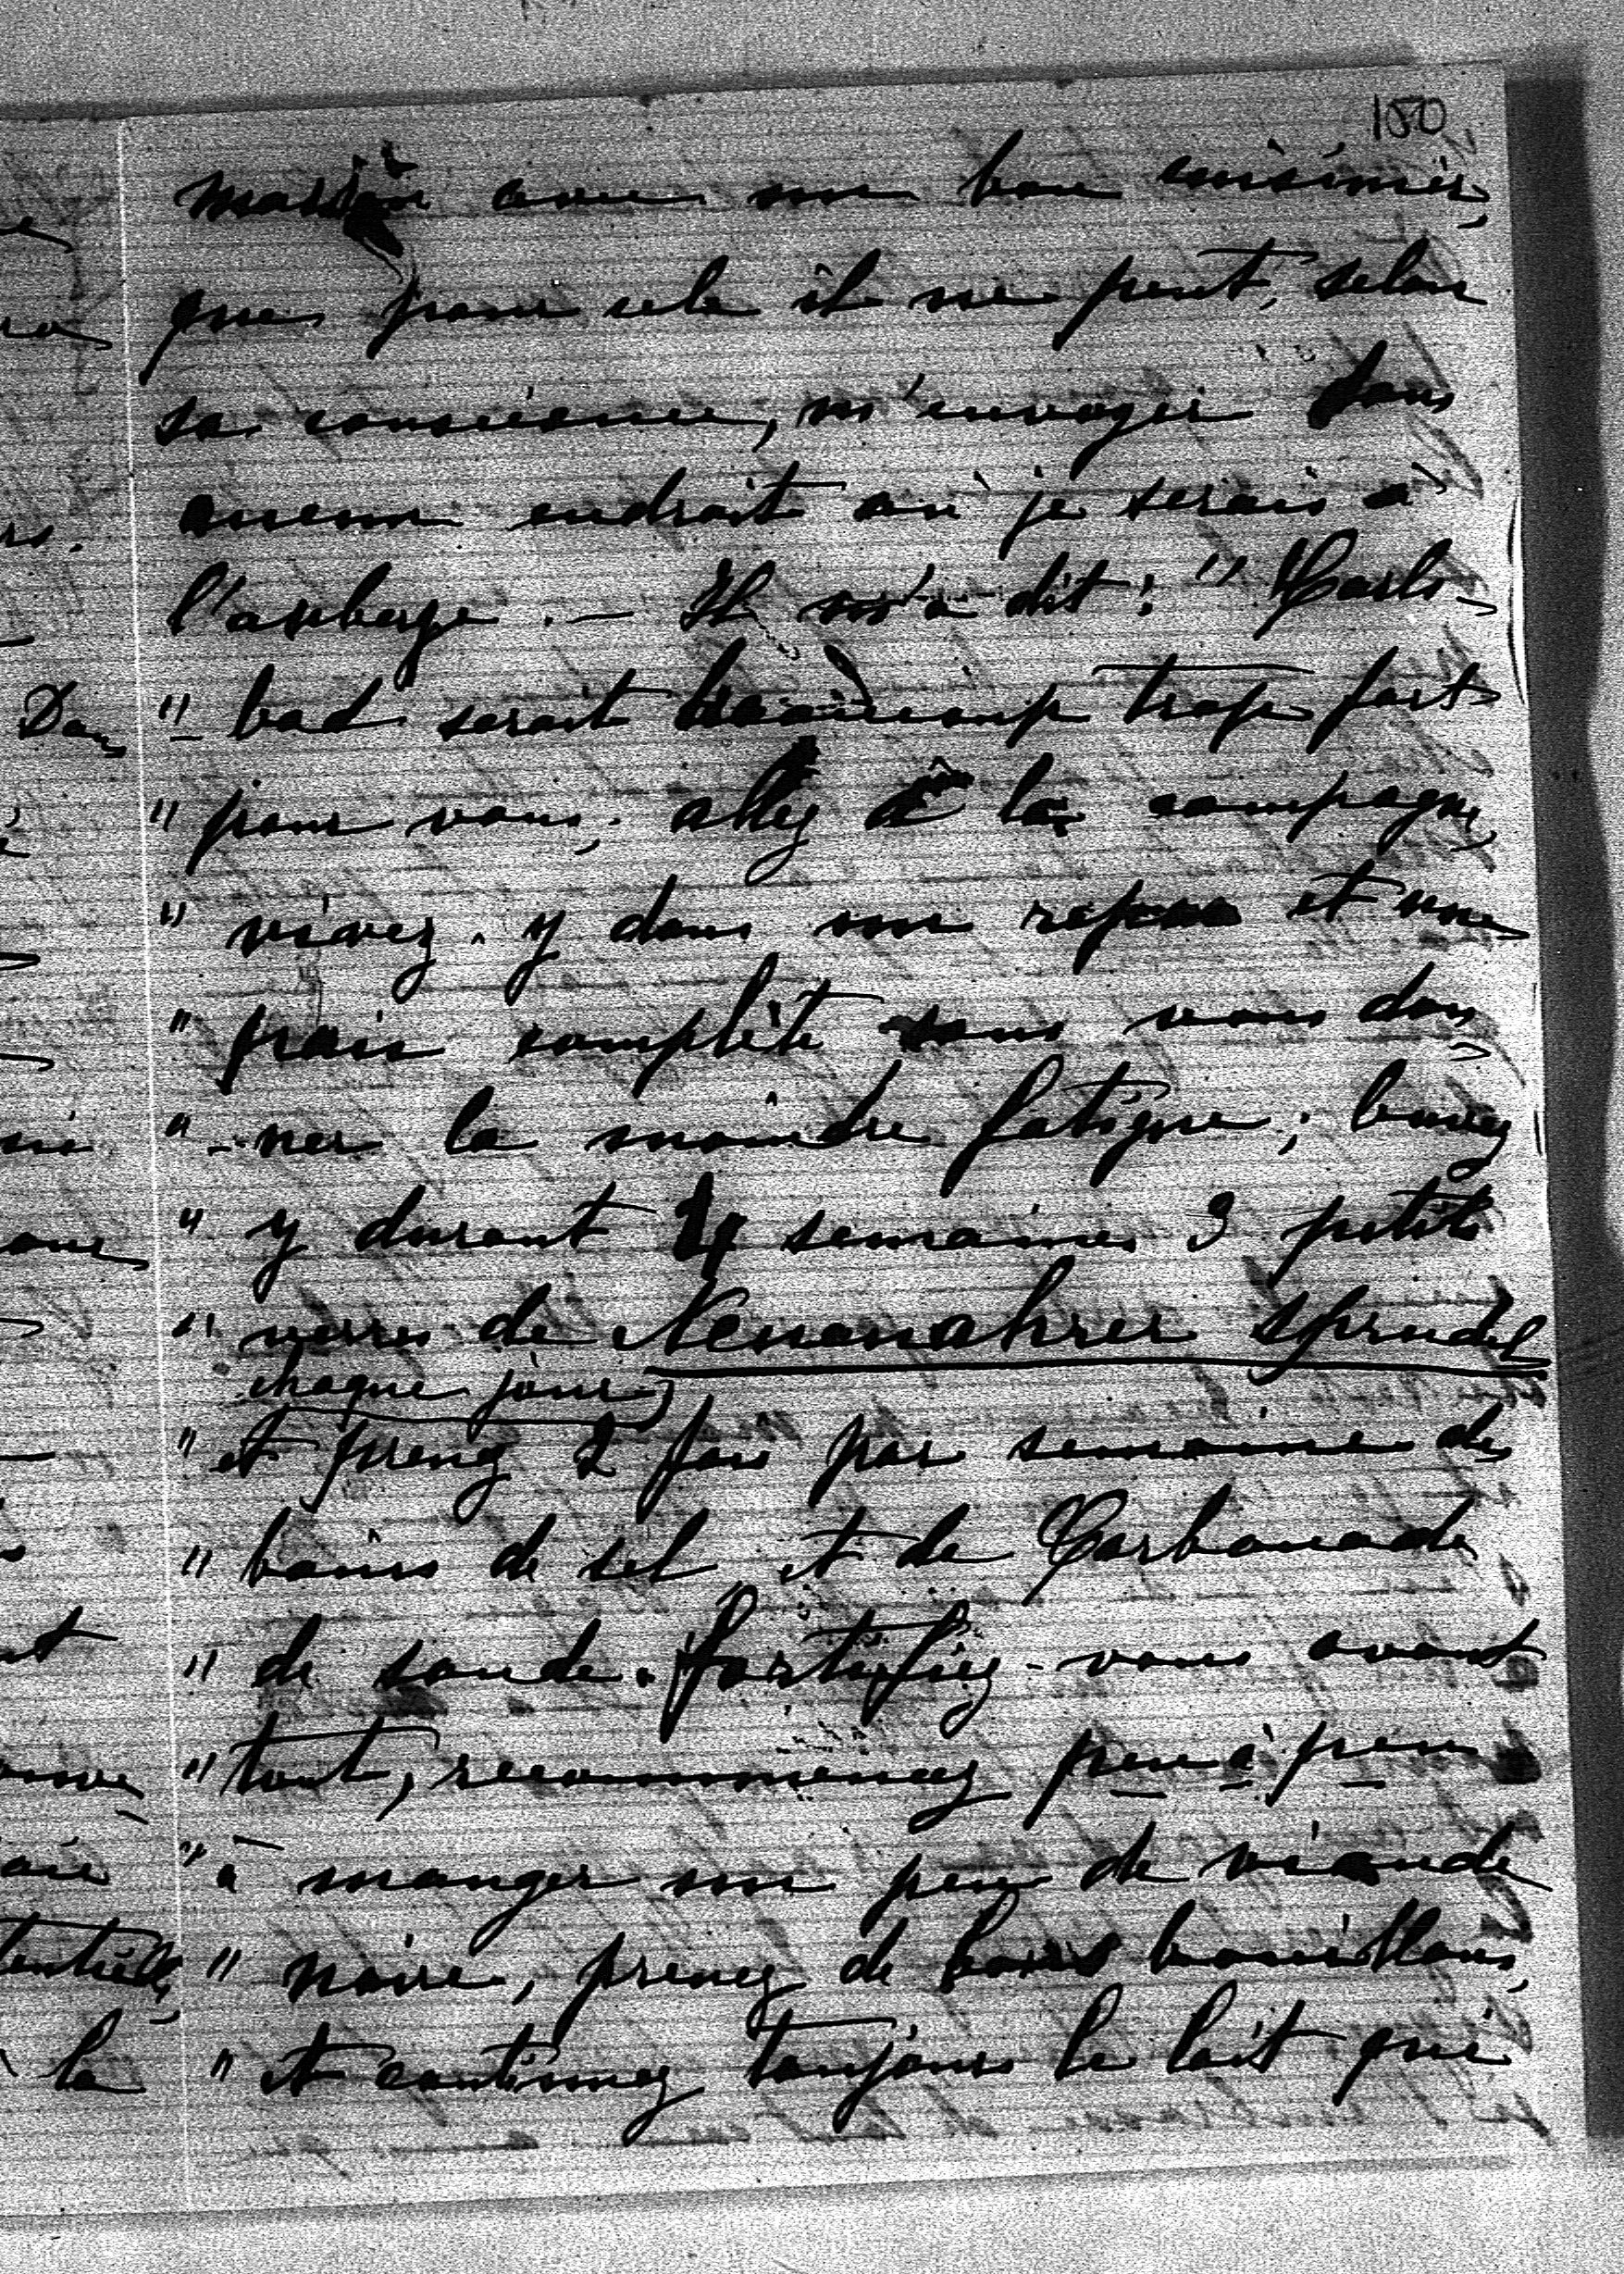 150
maison avec un bon cuisinier,
que pour cela il ne peut, selon
sa conscience, m'envoyer dans
aucun endroit où je serais à
l'auberge. — Il m'a dit: " Carls-
" - bad serait beaucoup trop fort
" pour vous, allez à la campagne,
" vivez-y dans un repos et une
" paix complète sans vous don-
" - ner la moindre fatigue; buvez
" y durant 4 semaines 3 petits
" verres de Neuenahrer Sprudel
chaque jour
" et prenez 2 fois par semaine des
" bains de sel et de Carbonade
" de soude. Fortifiez-vous avant
" tout, recommencez peu à peu
" à manger un peu de viande
" noire, prenez de bons bouillons,
" et continuez toujours le lait qui
Dans
la